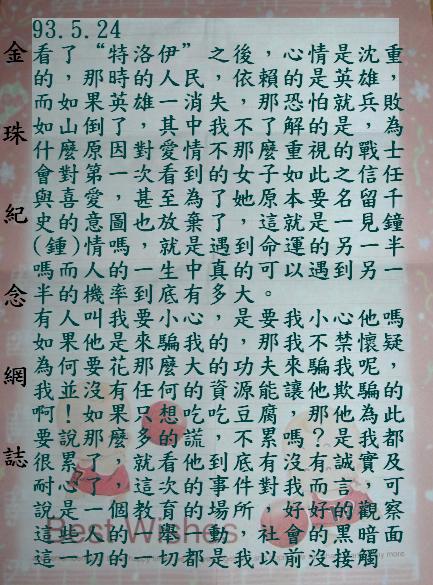 93.5.24
金珠紀念網誌
看了“特洛伊”之後，心情是沈重
的，那時的人民，依賴的是英雄，
而如果英雄一消失，那恐怕就兵，敗
如山倒了，其中我不了解的是，為
什麼原因對愛情不那麼重視的戰士
會對第一次看到的女子如此之信任
與喜愛，甚至為了她原本要名留千
史的意圖也放棄了，這就是一見鐘
(鍾)情嗎，就是遇到命運的另一半
嗎而人的一生中真的可以遇到另一
半的機率到底有多大。
有人叫我要小心，是要我小心他嗎
如果他來騙我的，那我不禁懷疑，
為何要花那麼大的功夫來騙我呢，
我並沒有任何的資源能讓他欺騙的
啊！如果只想吃吃豆腐，那他為此
要說那麼多的謊，不累嗎？是我都
很累了，就看他到底有沒有誠實及
耐心了，這次的事件對我而言，可
說是一個教育的場所，好好的觀察
這些人的一舉一動，社會的黑暗面
這一切的一切都是我以前沒接觸
Best Wishes